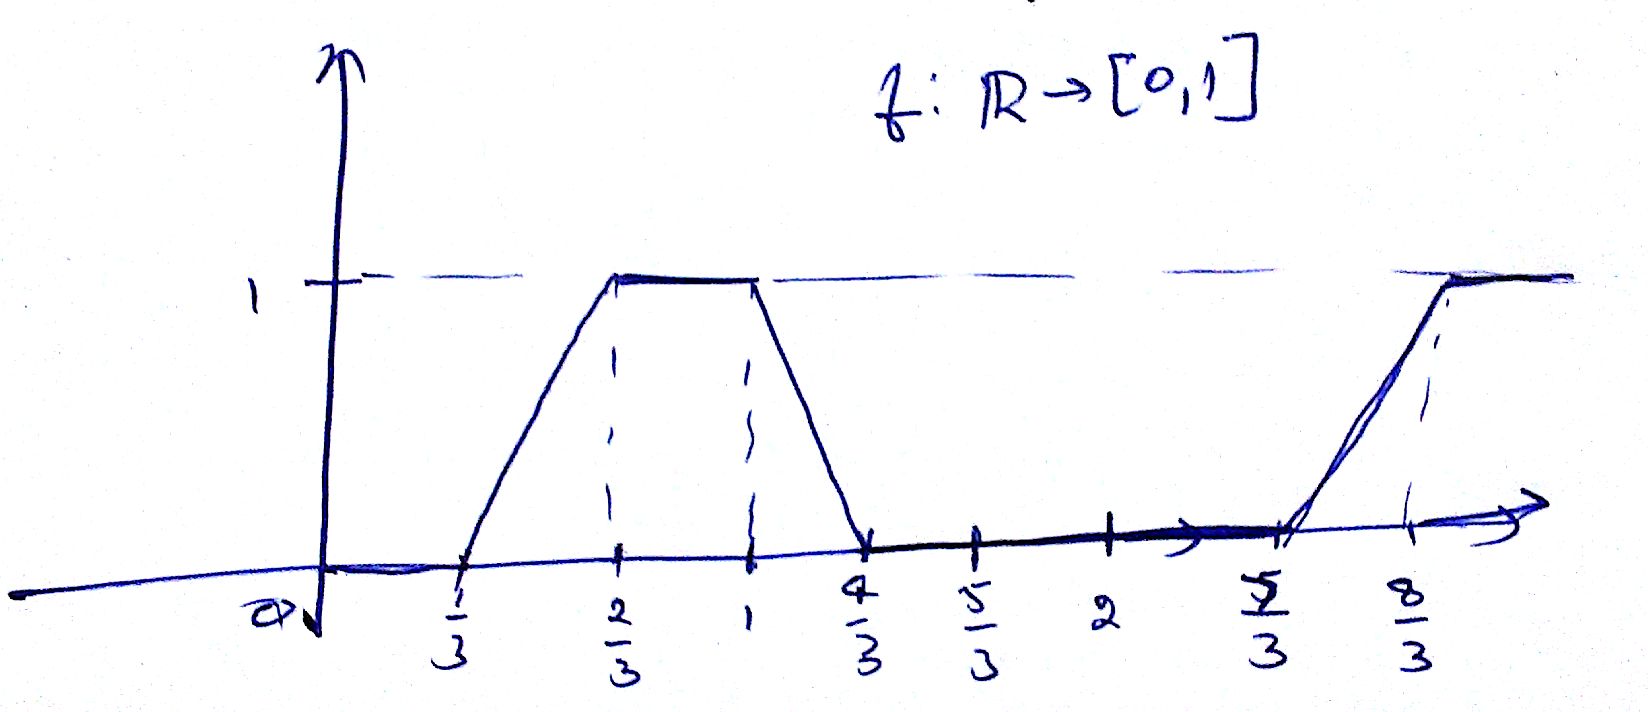 f: ℝ → [0,1]
1
0 1/3 2/3 1 4/3 5/3 2 5/3 8/3